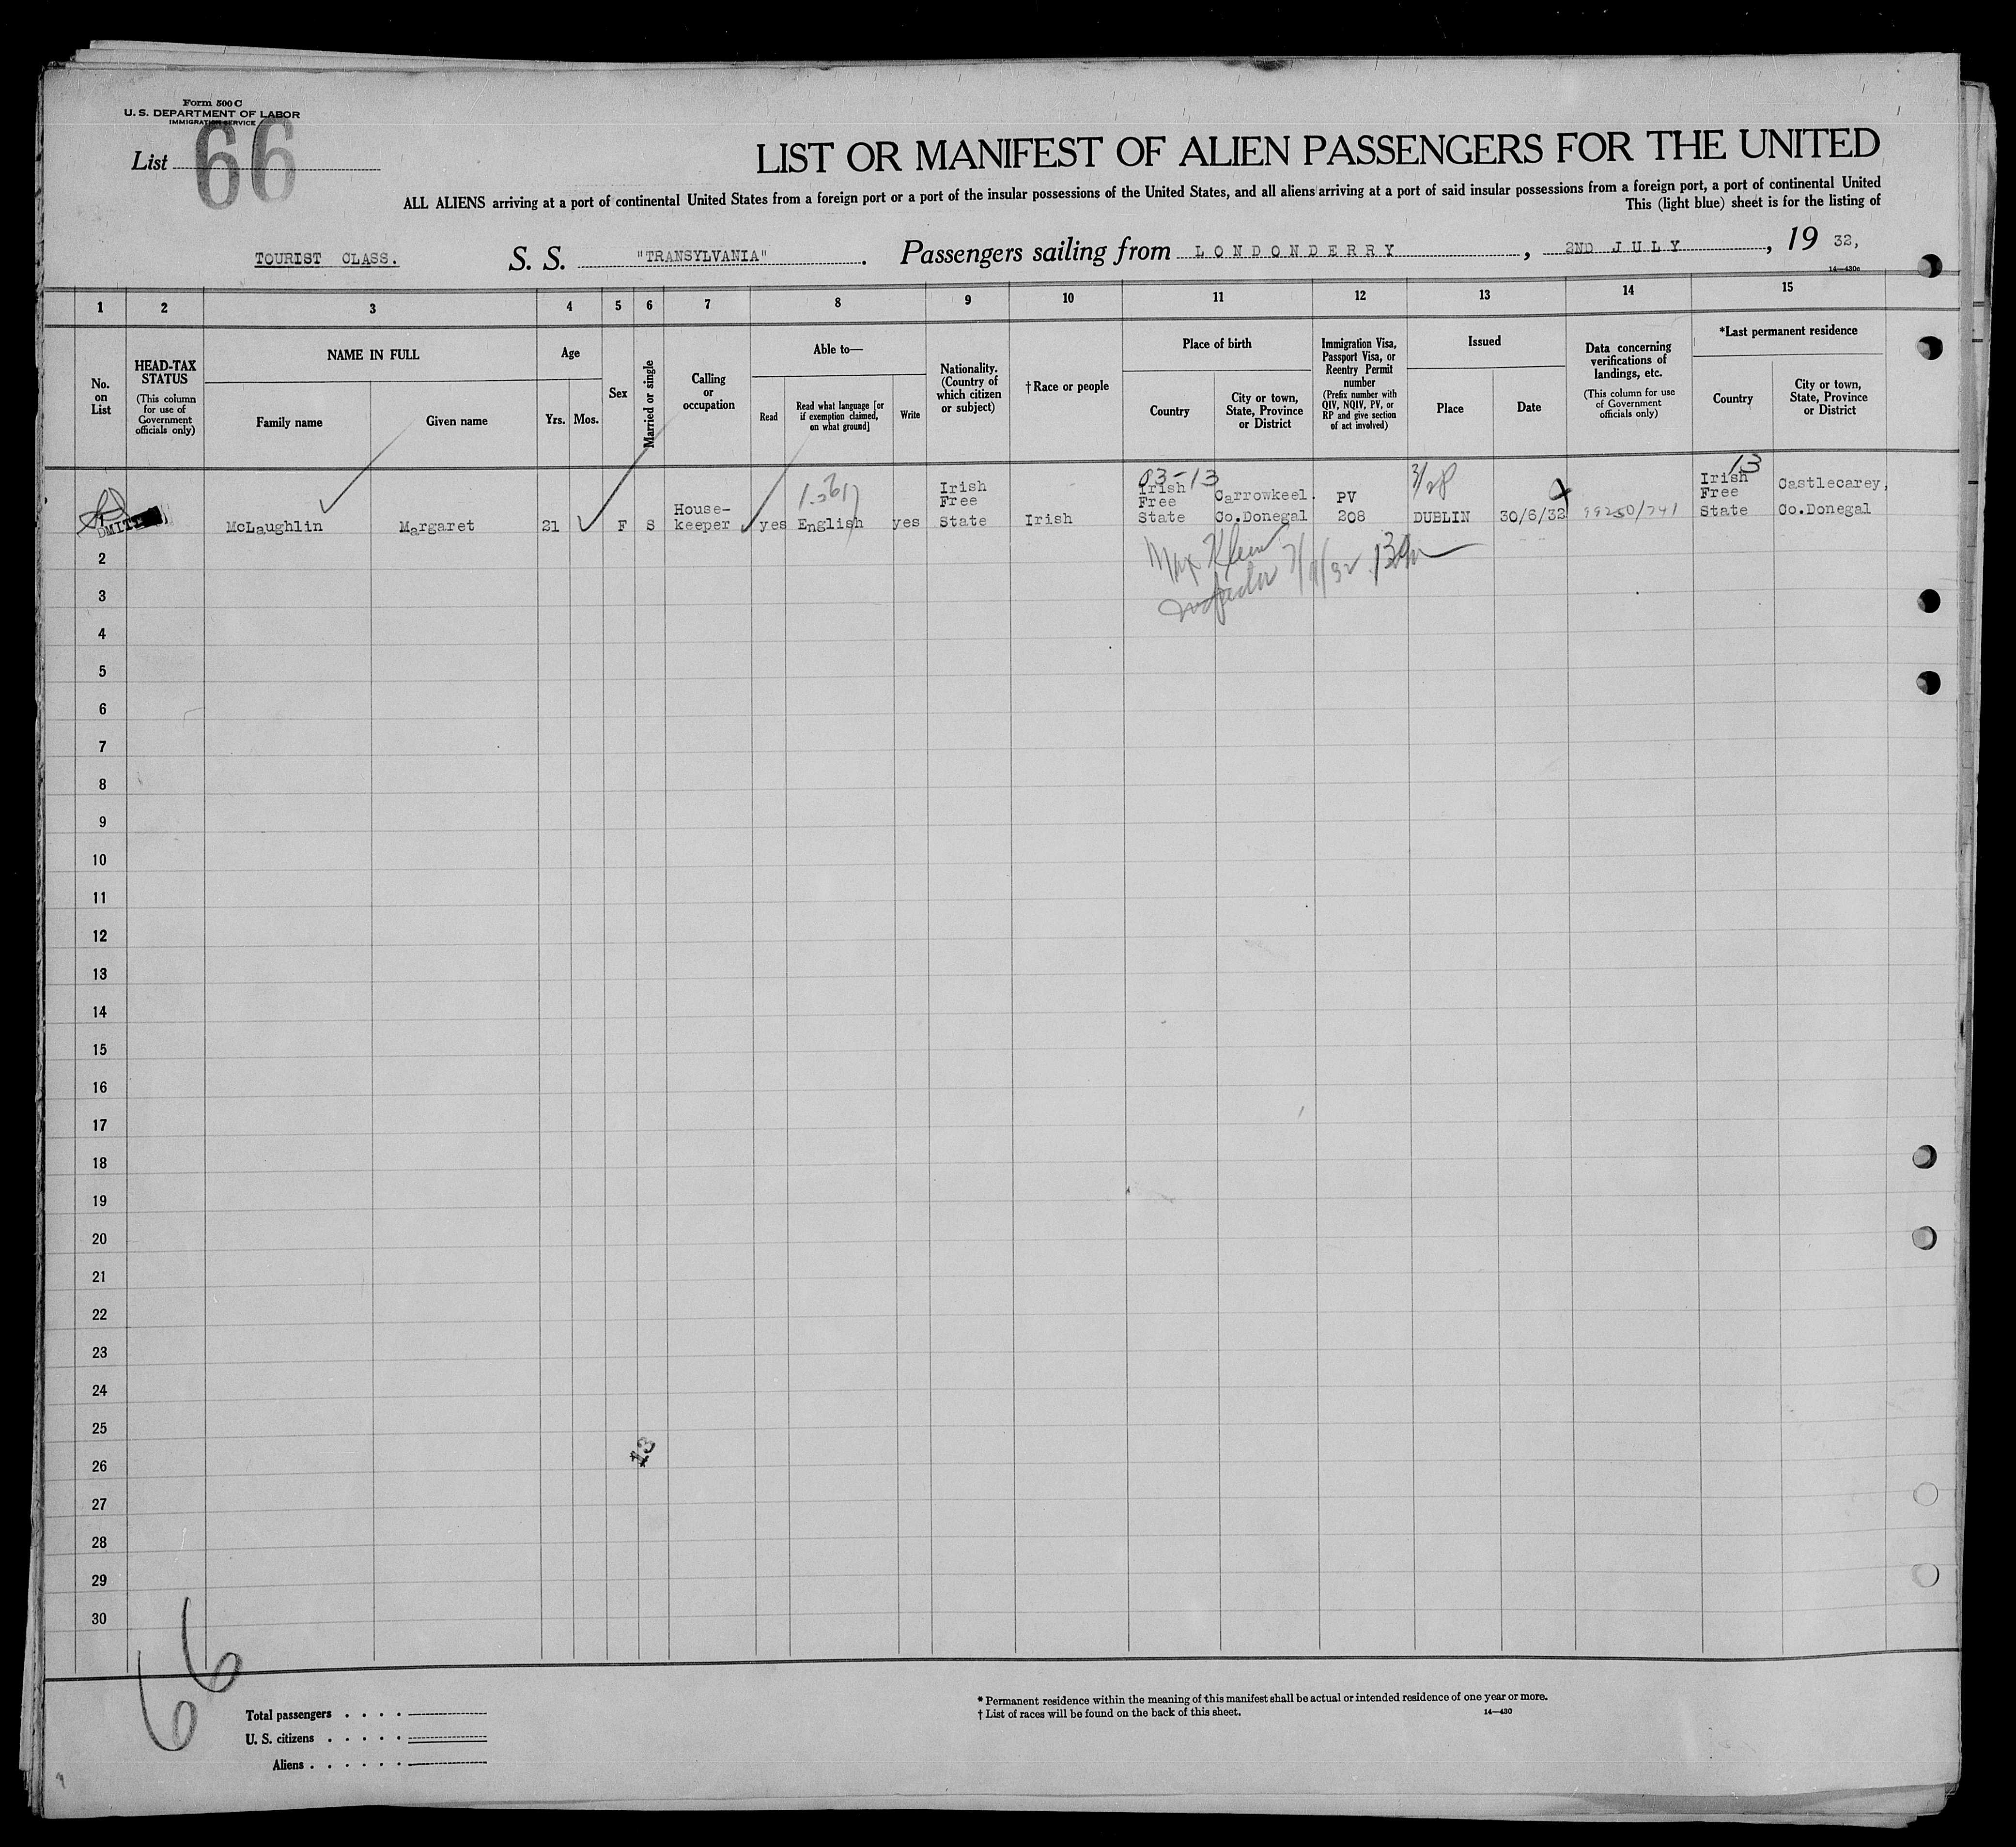 Form 500 C
U. S. DEPARTMENT OF LABOR
IMMIGRATION SERVICE
List 66
LIST OR MANIFEST OF ALIEN PASSENGERS FOR THE UNITED
ALL ALIENS arriving at a port of continental United States from a foreign port or a port of the insular possessions of the United States, and all aliens arriving at a port of said insular possessions from a foreign port, a port of continental United
This (light blue) sheet is for the listing of
TOURIST CLASS. S. S. "TRANSYLVANIA". Passengers sailing from LONDONDERRY, 2ND JULY, 19 32,
14—430c
1 2 3 4 5 6 7 8 9 10 11 12 13 14 15
No. on List
HEAD-TAX STATUS
(This column for use of Government officials only)
NAME IN FULL
Family name
Given name
Age
Yrs.
Mos.
Sex
Married or single
Calling or occupation
Able to—
Read
Read what language [or if exemption claimed, on what ground]
Write
Nationality. (Country of which citizen or subject)
†Race or people
Place of birth
Country
City or town, State, Province or District
Immigration Visa, Passport Visa, or Reentry Permit number
(Prefix number with QIV, NQIV, PV, or RP and give section of act involved)
Issued
Place
Date
Data concerning verifications of landings, etc.
(This column for use of Government officials only)
*Last permanent residence
Country
City or town, State, Province or District
03-13
13
McLaughlin Margaret 21 F S House-keeper yes English yes Irish Free State Irish Irish Free State Carrowkeel. Co.Donegal PV 208 DUBLIN 30/6/32 Irish Free State Castlecarey, Co.Donegal
Max Klein
Inspector
2
3
4
5
6
7
8
9
10
11
12
13
14
15
16
17
18
19
20
21
22
23
24
25
26
27
28
29
30
13
66
Total passengers . . . .
U. S. citizens . . . . .
Aliens . . . . . .
* Permanent residence within the meaning of this manifest shall be actual or intended residence of one year or more.
† List of races will be found on the back of this sheet.
14—430